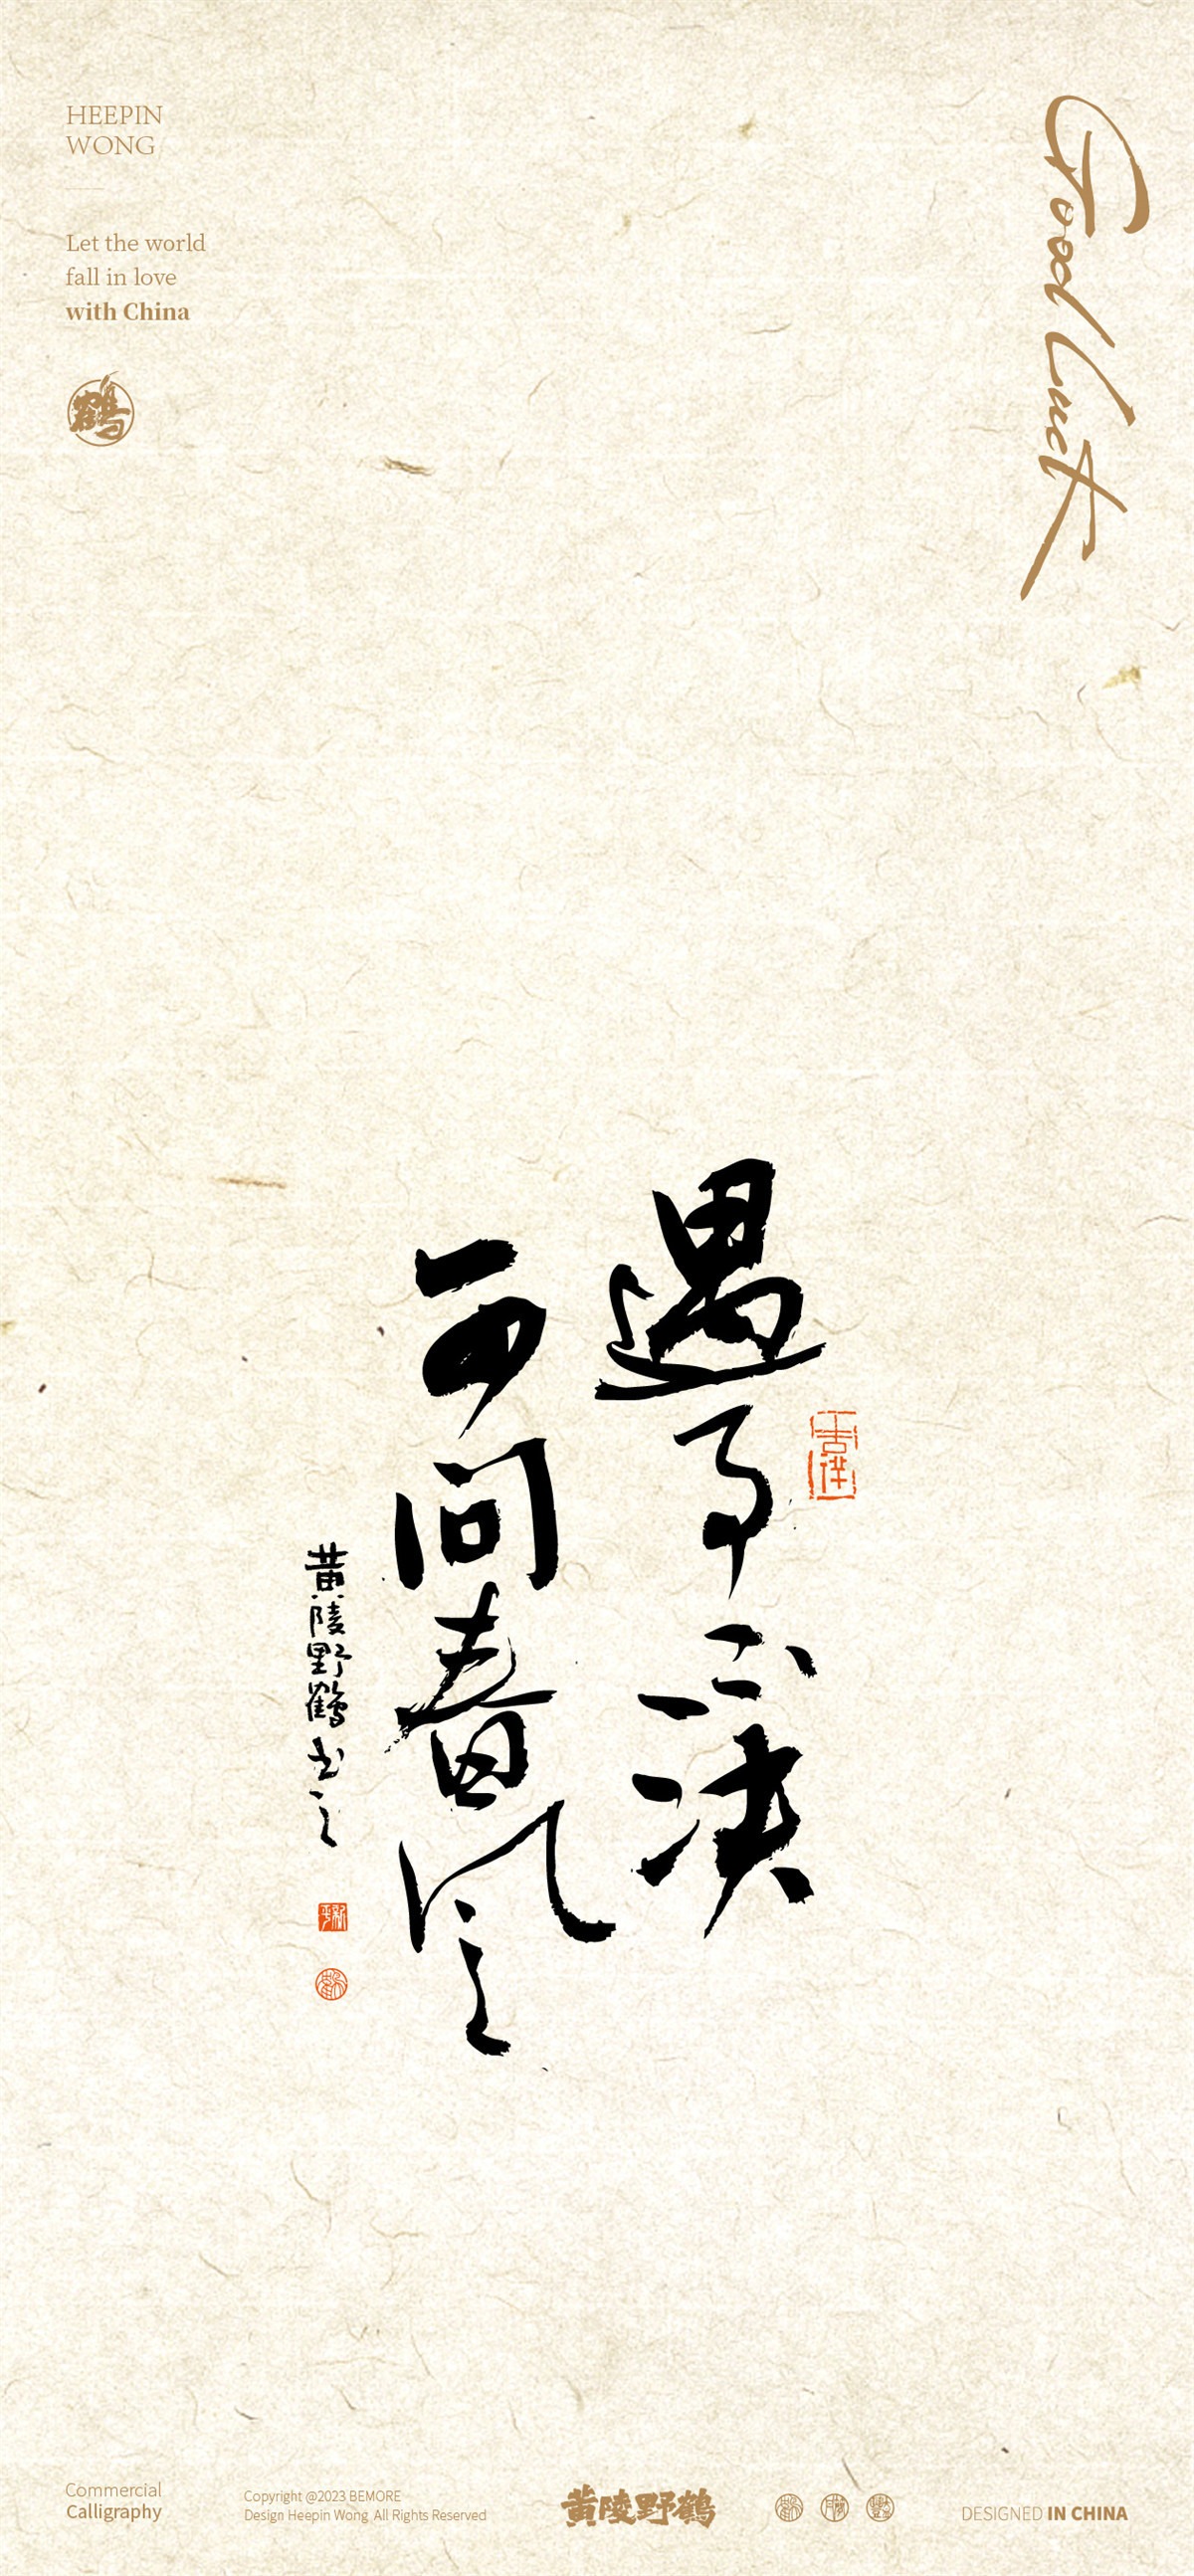 HEEPIN
WONG
Let the world
fall in love
with China
鹤
Good luck
遇事不决
可问春风
黄陵野鹤书之
Commercial
Calligraphy
Copyright @2023 BEMORE
Design Heepin Wong All Rights Reserved
黄陵野鹤
DESIGNED IN CHINA